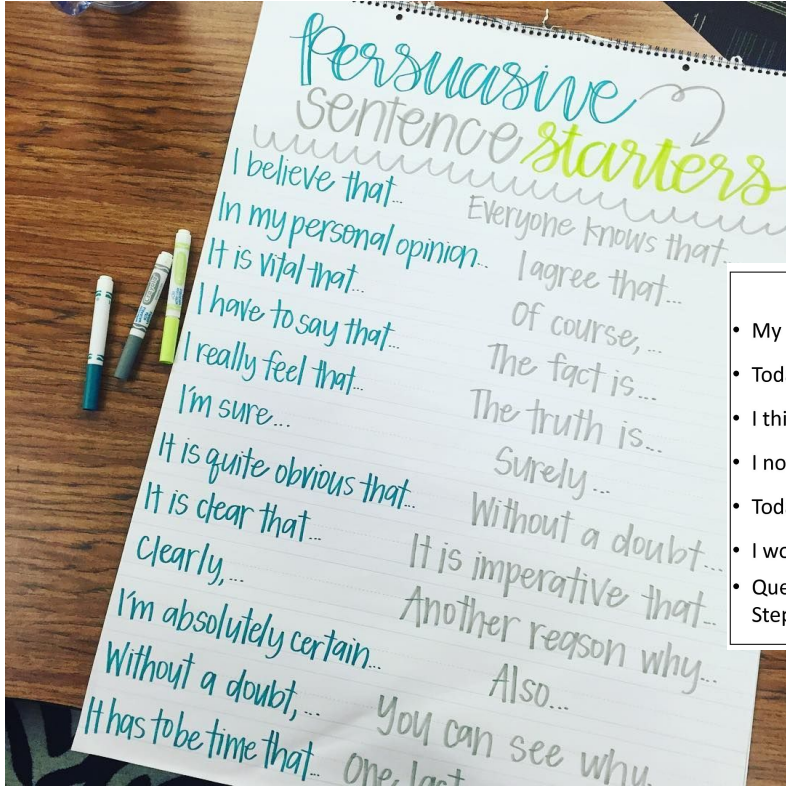 Persuasive
sentence starters
I believe that...
In my personal opinion...
It is vital that...
I have to say that...
I really feel that...
I'm sure...
It is quite obvious that...
It is clear that...
Clearly,...
I'm absolutely certain...
Without a doubt,...
It has to be time that...
Everyone knows that...
I agree that...
Of course,...
The fact is...
The truth is...
Surely...
Without a doubt...
It is imperative that...
Another reason why...
Also...
You can see why.
One last
• My
• 
• I
• I
• 
• I